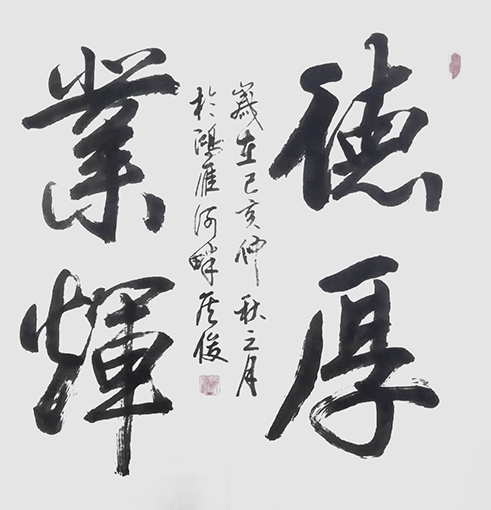 德厚
業輝
歲在己亥仲秋之月
於鴻雁河畔居俊